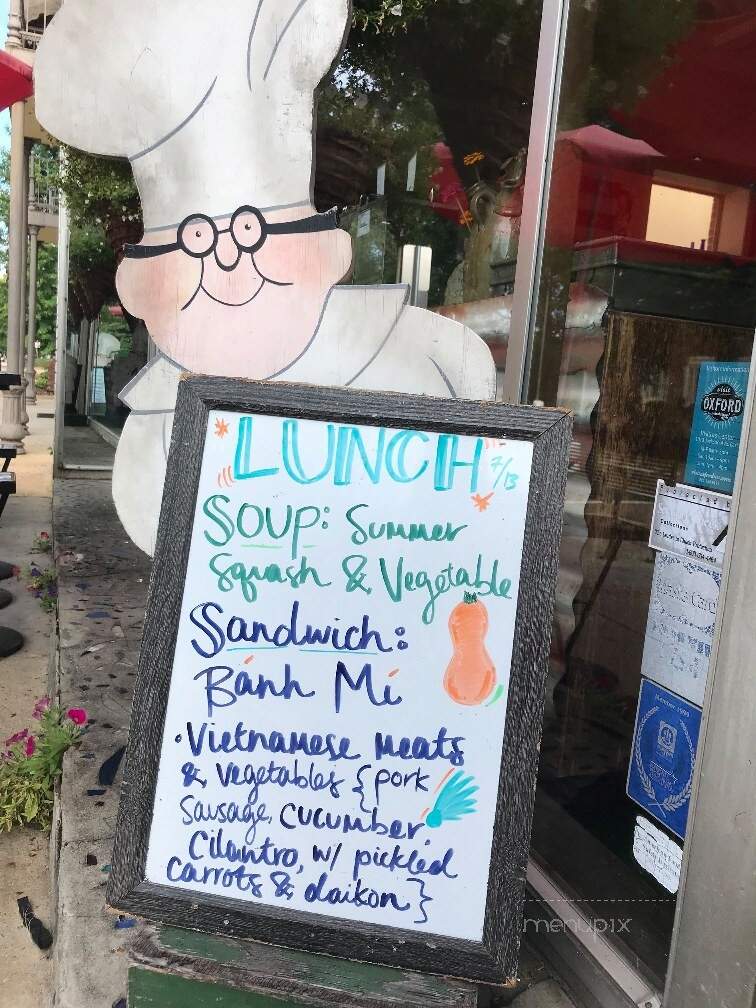 LUNCH 7/13
Soup: Summer
Squash & Vegetable
Sandwich:
Bánh Mí
• Vietnamese meats
& vegetables {pork
sausage, cucumber,
cilantro, w/ pickled
carrots & daikon}
visit
OXFORD
menupix